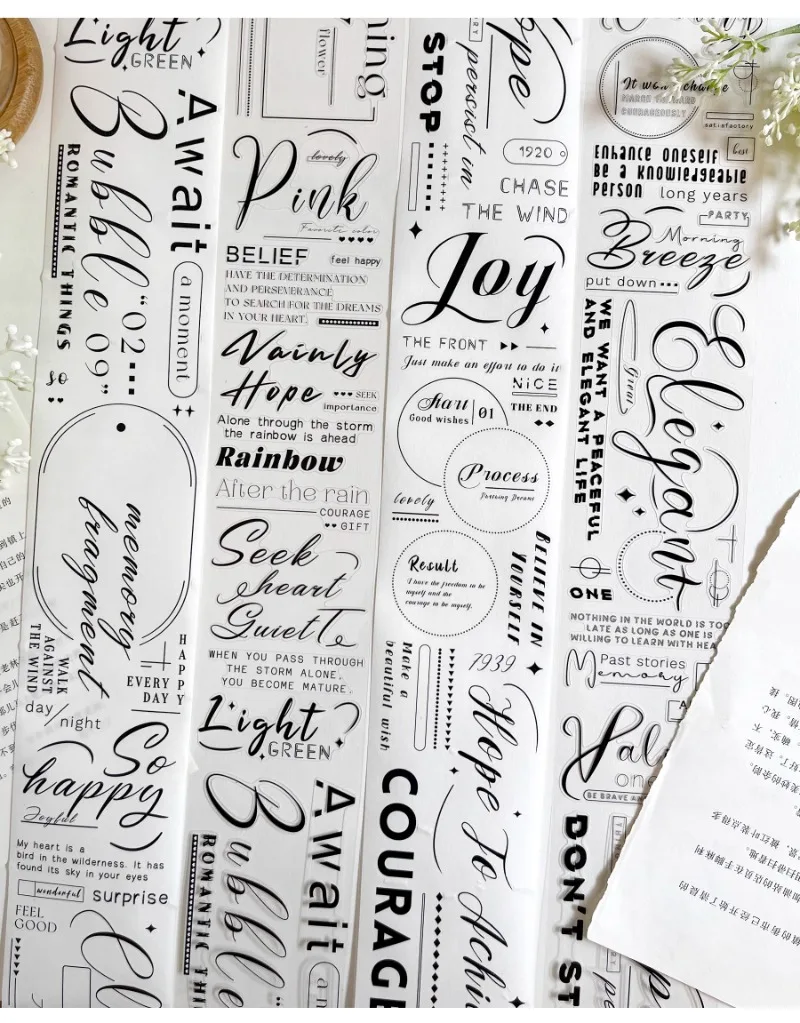 Light
GREEN
Await
Bubble
"02
09"
ROMANTIC THINGS
a moment
so
memory
fragment
WALK
AGAINST
THE WIND
HAPPY
EVERY
DAY
day/night
So
happy
Joyful
My heart is a
bird in the wilderness. It has
found its sky in your eyes
wonderful
surprise
FEEL
GOOD
flower
lovely
Pink
Favorite color
BELIEF
feel happy
HAVE THE DETERMINATION
AND PERSEVERANCE
TO SEARCH FOR THE DREAMS
IN YOUR HEART.
Vainly
Hope
SEEK
importance
Alone through the storm
the rainbow is ahead
Rainbow
After the rain
COURAGE
GIFT
Seek
heart
Quiet
WHEN YOU PASS THROUGH
THE STORM ALONE,
YOU BECOME MATURE.
Light
GREEN
Await
Bubble
ROMANTIC THI
STOP
persist in
1920
CHASE
THE WIND
Joy
THE FRONT
Just make an effort to do it
NiCE
THE END
Start
01
Good wishes
Process
Pursuing Dreams
lovely
Result
I have the freedom to be
myself and the
courage to be myself.
BELIEVE IN
YOURSELF
1939
Make a
beautiful wish
Hope To Achi
COURAGE
It won't change
MARCH FORWARD
COURAGEOUSLY
satisfactory
best
Enhance oneself
Be a knowledgeable
person
long years
PARTY
Morning
Breeze
put down
WE WANT A PEACEFUL
AND ELEGANT LIFE
Great
Elegant
ONE
NOTHING IN THE WORLD IS TOO
LATE AS LONG AS ONE IS
WILLING TO LEARN WITH HEA
Past stories
Memory
one
BE BRAVE AN
DON'T ST